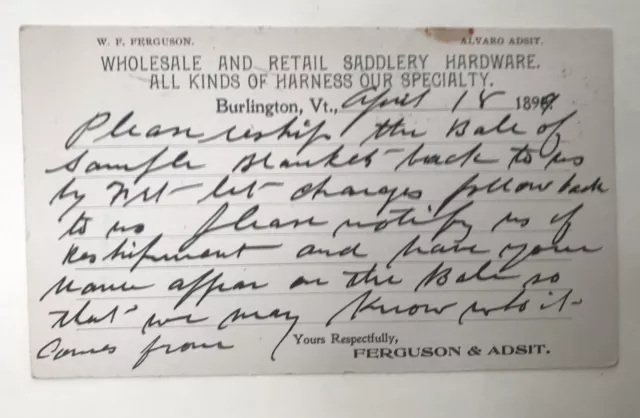 W. F. FERGUSON. ALVARO ADSIT.
WHOLESALE AND RETAIL SADDLERY HARDWARE.
ALL KINDS OF HARNESS OUR SPECIALTY.
Burlington, Vt., April 18 1899
Please reship the Bale of
Sample Blankets back to us
by Frt let charges follow back
to us Please notify us of
Reshipment and have your
name appear on the Bale so
that we may know who it
comes from
Yours Respectfully,
FERGUSON & ADSIT.